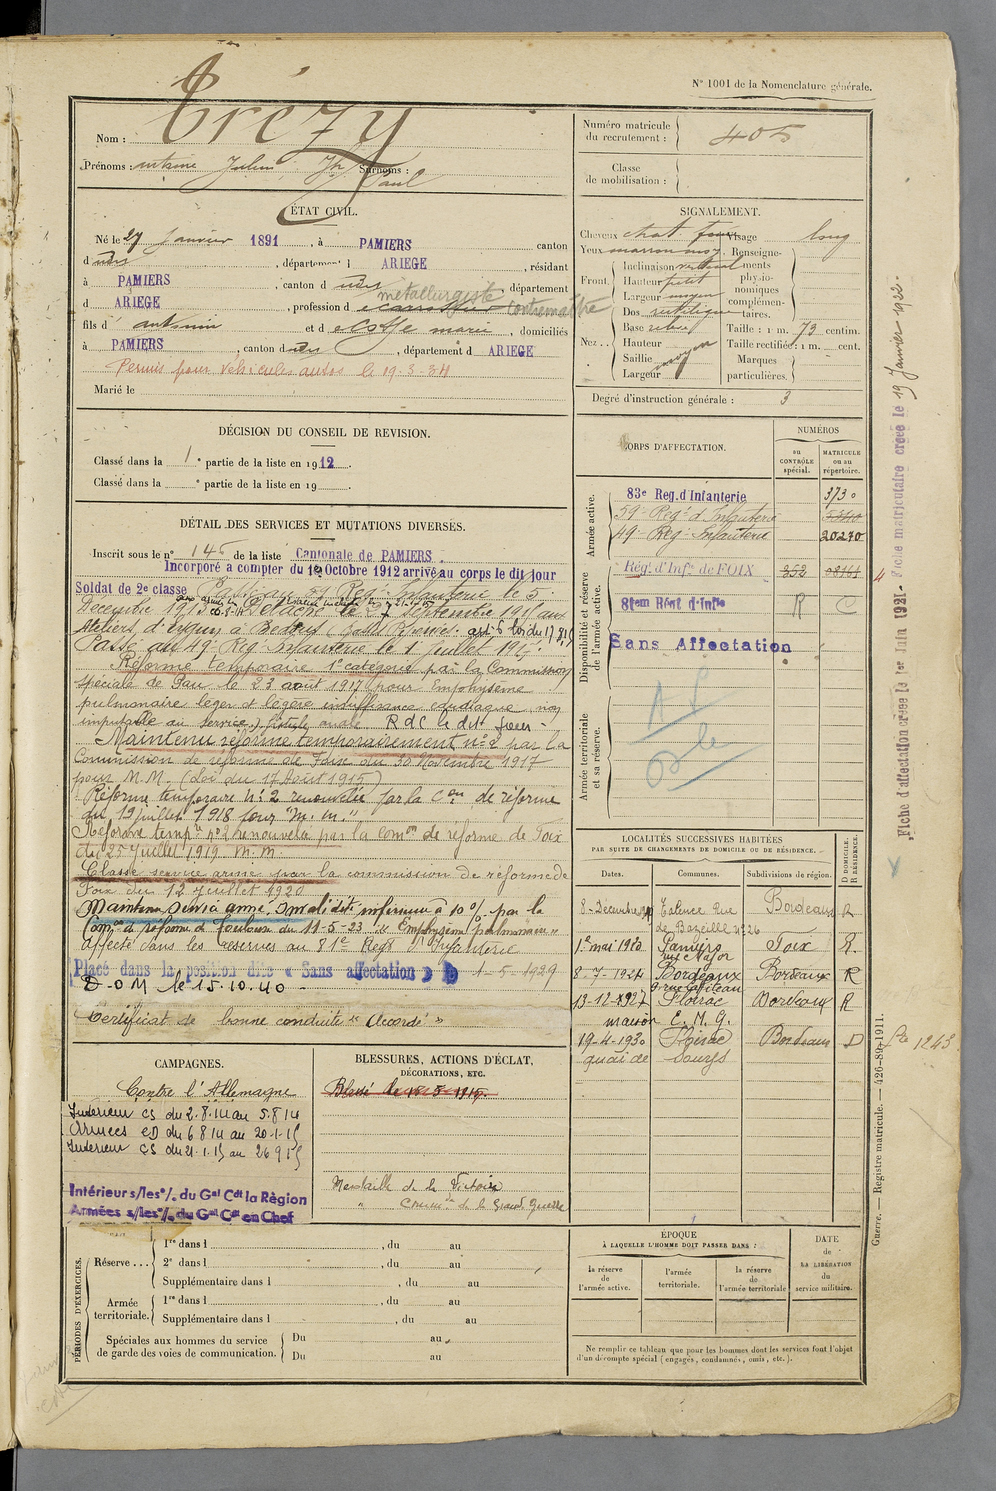 N° 1001 de la Nomenclature générale.
Nom : Trézy
Prénoms : Antoine Julien Jh Surnoms :
Paul
Numéro matricule
du recrutement : 405
Classe
de mobilisation :
ÉTAT CIVIL.
Né le 27 Janvier 1891, à PAMIERS canton
d udes, département d ARIEGE, résidant
à PAMIERS, canton d udes, département
d ARIEGE, profession d métallurgiste contremaître
fils d' antonin et d marie, domiciliés
à PAMIERS, canton d udes, département d ARIEGE
Permis pour véhicules autos le 19-3-34
Marié le
SIGNALEMENT.
Cheveux chat Visage long
Yeux marron moy. Renseigne-
ments
physio-
nomiques
complémen-
taires.
Front Inclinaison vertical
Hauteur petit
Largeur moyen
Nez Dos rectiligne
Base
Hauteur
Saillie moyen
Largeur
Taille : 1 m. 73 centim.
Taille rectifiée : 1 m. cent.
Marques
particulières.
Degré d'instruction générale : 3
DÉCISION DU CONSEIL DE REVISION.
Classé dans la 1e partie de la liste en 1912.
Classé dans la e partie de la liste en 19
CORPS D'AFFECTATION.
NUMÉROS
au
CONTRÔLE
spécial.
MATRICULE
ou au
répertoire.
Armée active.
83e Reg. d Infanterie 3730
59e Regt d Infanterie
49e Reg. Infanterie 20270
Disponibilité et réserve
de l'armée active.
Régt d'Infie de FOIX 352
81em Rént d'Infie R C
Sans Affectation
Armée territoriale
et sa réserve.
DÉTAIL DES SERVICES ET MUTATIONS DIVERSES.
Inscrit sous le n° 145 de la liste Cantonale de PAMIERS
Incorporé a compter du 10 Octobre 1912 arrivé au corps le dit jour
Soldat de 2e classe Infanterie le 5
Decembre 1913 Détaché le 7 Septembre 1915 aux
Ateliers d'
Passé au 49e Reg. Infanterie le 1 juillet 1917.
Réformé temporaire 1e catégorie par la Commission
Spéciale de Pau le 23 août 1917 pour Emphysème
pulmonaire léger et légère insuffisance cardiaque, non
imputable au service, R d C le dit jour
Maintenu réformé temporairement n° 2 par la
Commission de réforme de Foix du 30 Novembre 1917
pour M. M. (loi du 17 Aout 1915)
Réforme temporaire N° 2 renouvelée par la Con de réforme
du 19 juillet 1918 pour "M. m."
Réforme tempre n° 2 renouvelée par la comon de réforme de Foix
du 25 juillet 1919. M. M.
Classé service armé par la commission de réforme de
Foix du 12 juillet 1920
Maintenu service armé. Invalidité inférieure à 10 % par la
Comon de réforme de Toulouse du 11-5-23 "Emphysème pulmonaire"
Affecté dans les réserves au 81e Regt d'Infanterie
Placé dans la position dite « Sans affectation » 1-5-1929
D-O M le 15.10.40
Certificat de bonne conduite "Accordé"
LOCALITÉS SUCCESSIVES HABITÉES
PAR SUITE DE CHANGEMENTS DE DOMICILE OU DE RÉSIDENCE.
D DOMICILE.
R RÉSIDENCE.
Dates. Communes. Subdivisions de région.
8-Décembre Talence Rue Bordeaux R
de Bazeille n° 26
1er mai 1920 Pamiers Foix R.
rue Major
8-7-1924 Bordeaux Bordeaux R
13-12-1927 Floirac Bordeaux R
maison E. M. G.
19-4-1930 Floirac Bordeaux D
quai de Souys
CAMPAGNES.
Contre l'Allemagne
Intérieur CS du 2.8.14 au 5.8.14
Armées CD du 6 8 14 au 20-1-15
Intérieur CS du 21.1.15 au 26 9 15
Intérieur s/les o/. du Gal Cdt la Région
Armées s/les o/. du Gal Cdt en Chef
BLESSURES, ACTIONS D'ÉCLAT,
DÉCORATIONS, ETC.
Médaille de la Victoire
" Comm. de la Grande Guerre
PÉRIODES D'EXERCICES.
Réserve... 1re dans l, du au
2e dans l, du au
Supplémentaire dans l, du au
Armée
territoriale. 1re dans l, du au
Supplémentaire dans l, du au
Spéciales aux hommes du service
de garde des voies de communication. Du au
Du au
ÉPOQUE
À LAQUELLE L'HOMME DOIT PASSER DANS :
la réserve
de
l'armée active.
l'armée
territoriale.
la réserve
de
l'armée territoriale
DATE
de
LA LIBÉRATION
du
service militaire.
Ne remplir ce tableau que pour les hommes dont les services font l'objet
d'un décompte spécial (engagés, condamnés, omis, etc.).
Fiche d'affectation créée le 1er Juin 1921. Fiche matriculaire créée le 19 Janvier 1922.
Guerre. — Registre matricule. — 426-89-1911.
1243